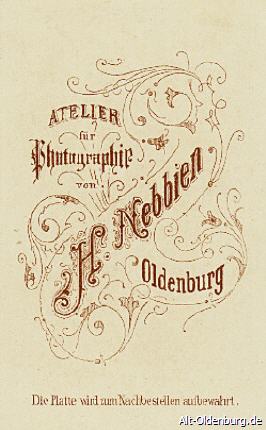 ATELIER
für
Photographie
von
H. Nebbien
Oldenburg
Die Platte wird zum Nachbestellen aufbewahrt.
Alt-Oldenburg.de